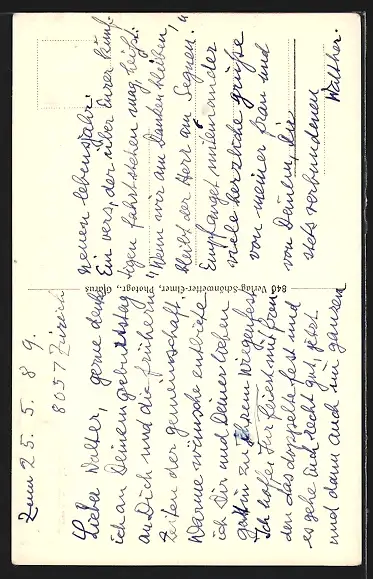 Zum 25. 5. 89.
8057 Zürich
Lieber Walter, gerne denke
ich an Deinem Geburtstag
an Dich und die früheren
Zeiten der Gemeinschaft.
Warme Wünsche entbiete
ich Dir und Deiner lieben
Gattin zu Ihrem Wiegenfest
Ich hoffe Ihr feiert mit Freu-
den das doppelte Fest und
es gehe Euch recht gut, jetzt
und dann auch im ganzen
neuen Lebensjahr.
Ein Vers, der über Eurer künf-
tigen Fahrt stehen mag, heißt:
"Wenn wir am Danken bleiben,
bleibt der Herr am Segnen."
Empfanget miteinander
viele herzliche Grüße
von meiner Frau und
von Deinem, Dir
stets verbundenen
Walther.
840 Verlag Schönwetter-Elmer, Photogr., Glarus